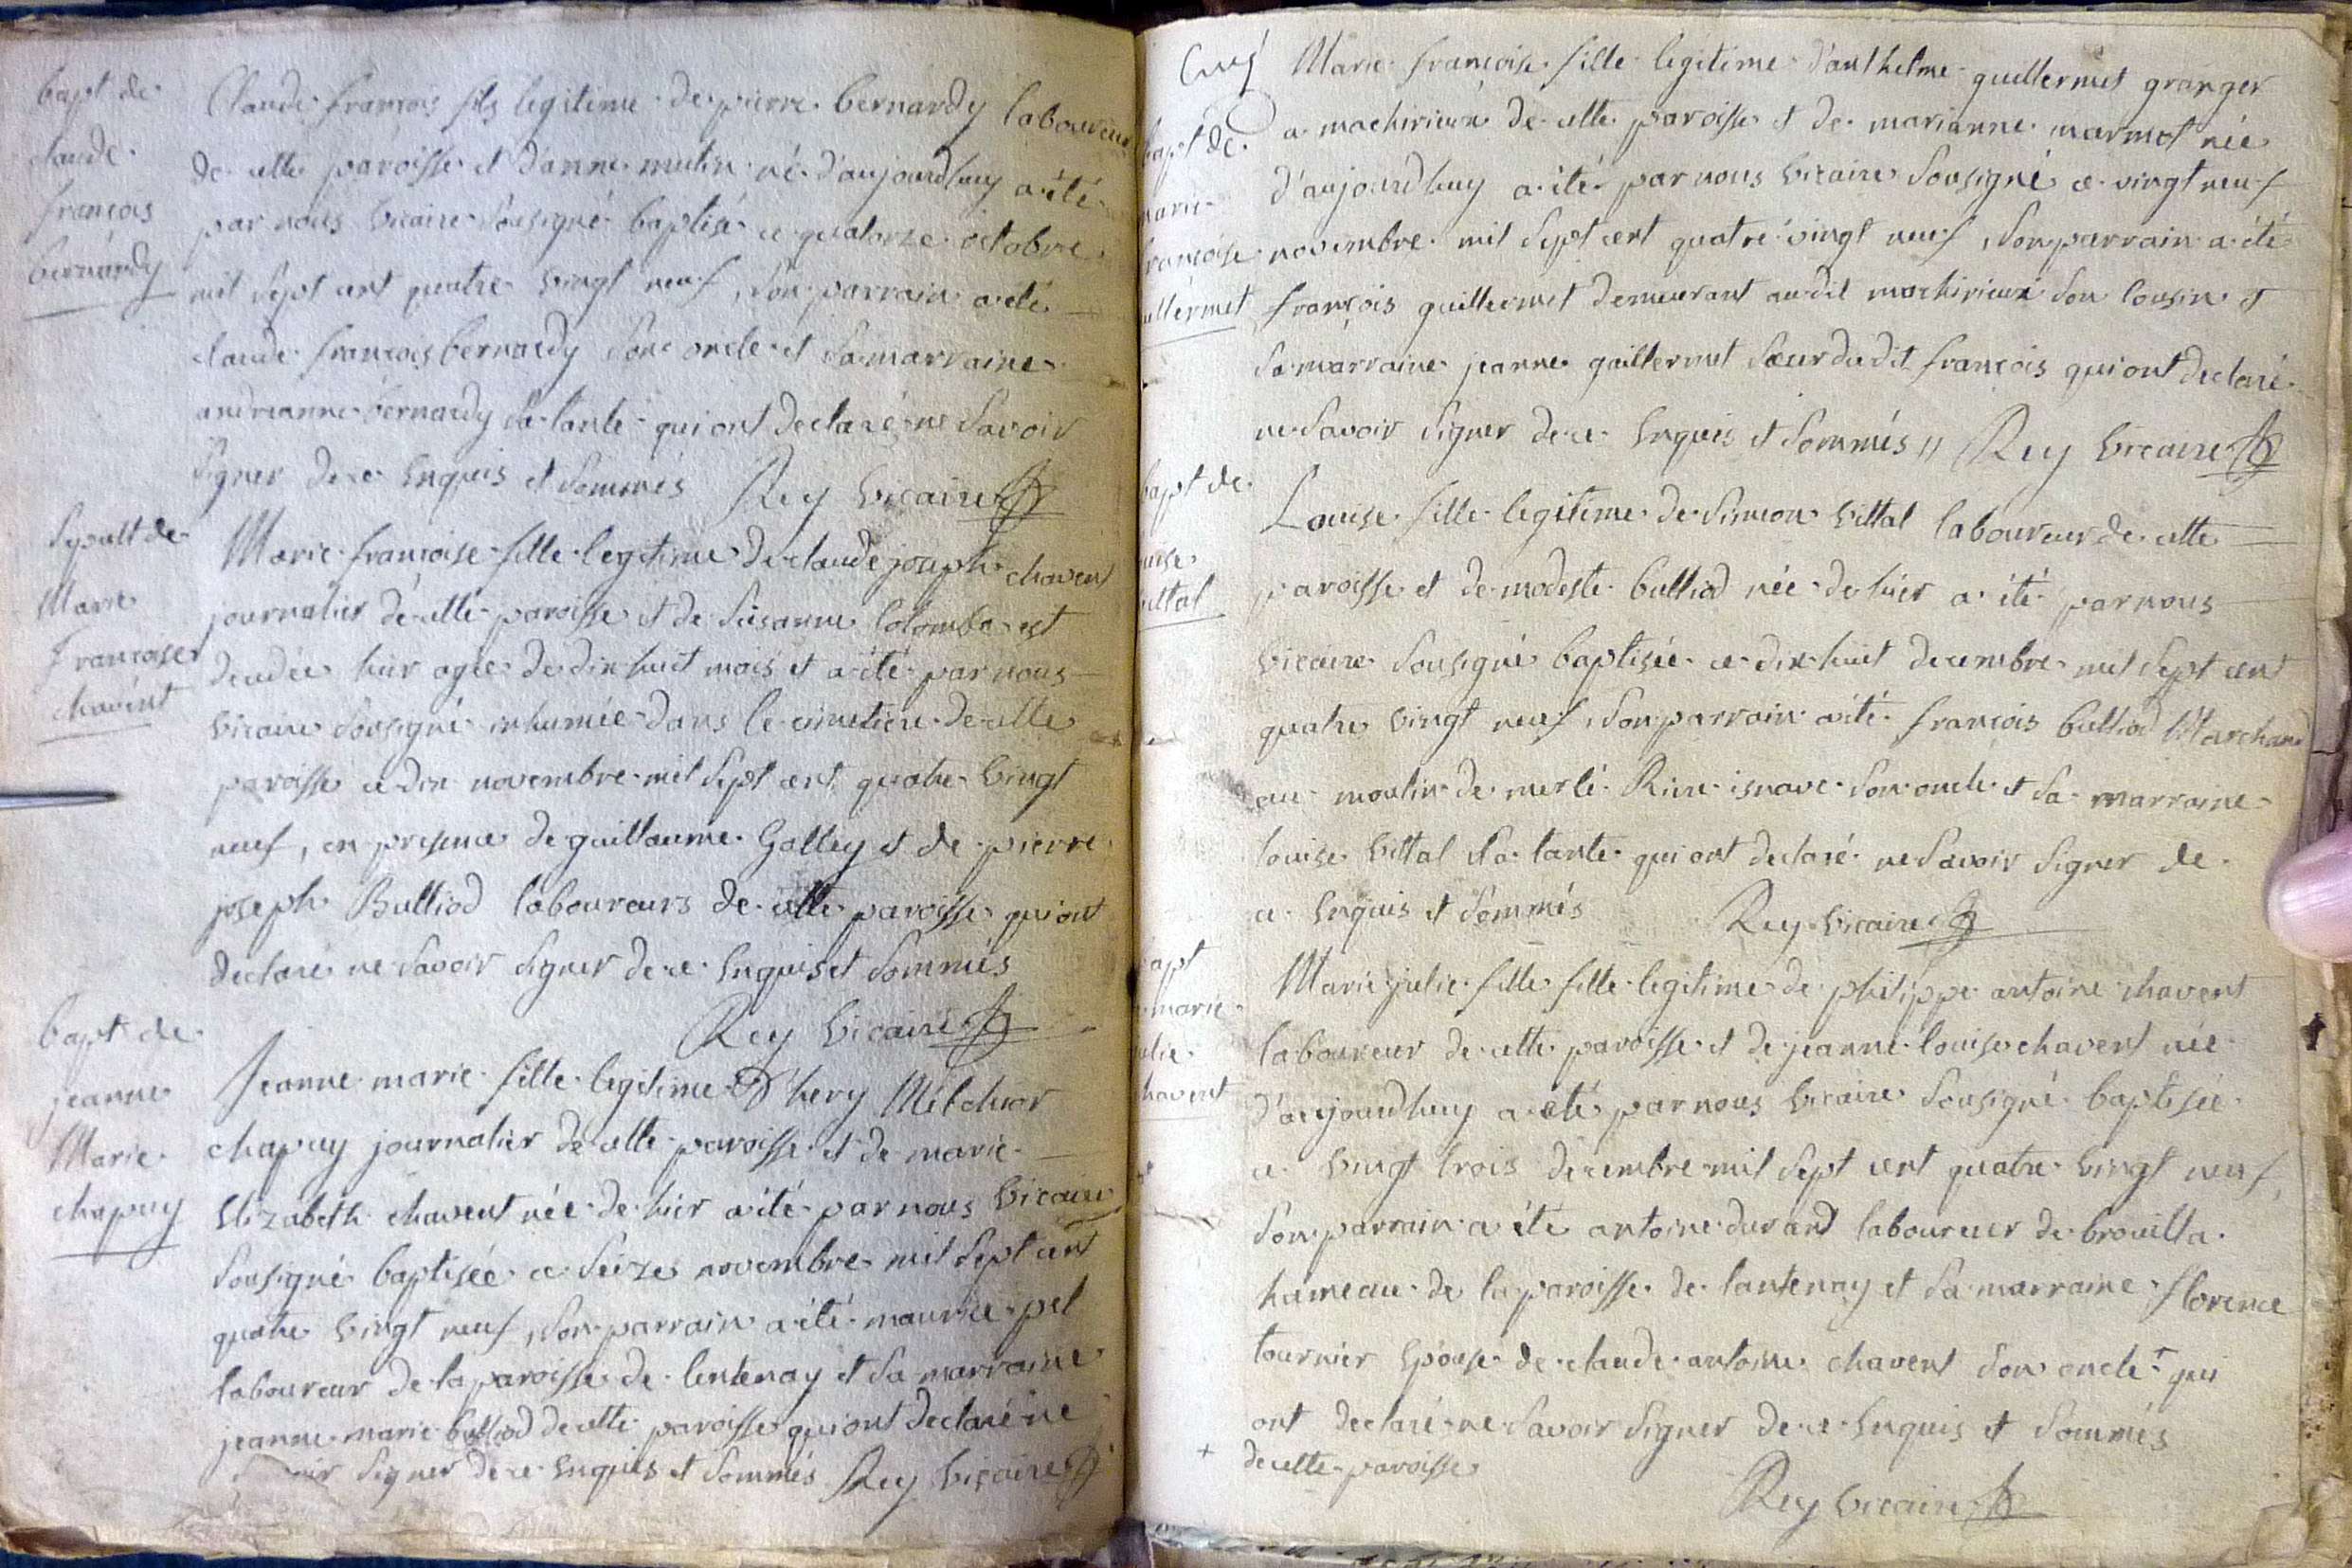 bapt de
claude
françois
bernardy
Claude françois fils legitime de pierre bernardy laboureur
de cette paroisse et d'anne mutin né d'aujourdhuy a été
par nous vicaire sousigné baptisé ce quatorze octobre
mil sept cent quatre vingt neuf, son parrain a été
claude françois bernardy son oncle et sa marraine
andrianne bernardy sa tante qui ont declaré ne savoir
signer de ce enquis et sommés Rey vicaire
sepult de
Marie
françoise
chavent
Marie françoise fille legitime de claude joseph chavent
journalier de cette paroisse et de susanne colomb est
decedée hier agée de dix huit mois et a été par nous
vicaire sousigné inhumée dans le cimetiere de cette
paroisse ce dix novembre mil sept cent quatre vingt
neuf, en presence de guillaume Golley et de pierre
joseph Bulliod laboureurs de cette paroisse qui ont
declaré ne savoir signer de ce enquis et sommés
Rey vicaire
bapt de
jeanne
Marie
chapuy
Jeanne marie fille legitime d'hery Melchior
chapuy journalier de cette paroisse et de marie
elizabeth chavent née de hier a été par nous vicaire
sousigné baptisée ce seize novembre mil sept cent
quatre vingt neuf, son parrain a été maurice pel
laboureur de la paroisse de lentenay et sa marraine
jeanne marie bulliod de cette paroisse qui ont declaré ne
savoir signer de ce enquis et sommés Rey vicaire
bapt de
marie
françoise
uillermet
Marie françoise fille legitime d'anthelme guillermet granger
a machirieux de cette paroisse et de marianne marmet née
d'aujourdhuy a été par nous vicaire sousigné ce vingt neuf
novembre mil sept cent quatre vingt neuf, son parrain a été
françois guillermet demeurant audit machirieux son cousin et
sa marraine jeanne guillermet sœur dudit françois qui ont declaré
ne savoir signer de ce enquis et sommés // Rey vicaire
bapt de
uise
ittal
Louise fille legitime de simeon vittal laboureur de cette
paroisse et de modeste bulliod née de hier a été par nous
vicaire sousigné baptisée ce dix huit decembre mil sept cent
quatre vingt neuf, son parrain a été françois bulliod Marchand
au moulin de merle Riere isnave son oncle et sa marraine
louise vittal sa tante qui ont declaré ne savoir signer de
ce enquis et sommés Rey vicaire
apt
marie
ulie
havent
Marie julie fille fille legitime de philippe antoine chavent
laboureur de cette paroisse et de jeanne louise chavent née
d'aujourdhuy a eté par nous vicaire sousigné baptisée
ce vingt trois decembre mil sept cent quatre vingt neuf,
son parrain a été antoine durand laboureur de brouilla
hameau de la paroisse de lantenay et sa marraine florence
tournier epouse de claude antoine chavent son oncle + qui
ont declaré ne savoir signer de ce enquis et sommés
+ de cette paroisse
Rey vicaire